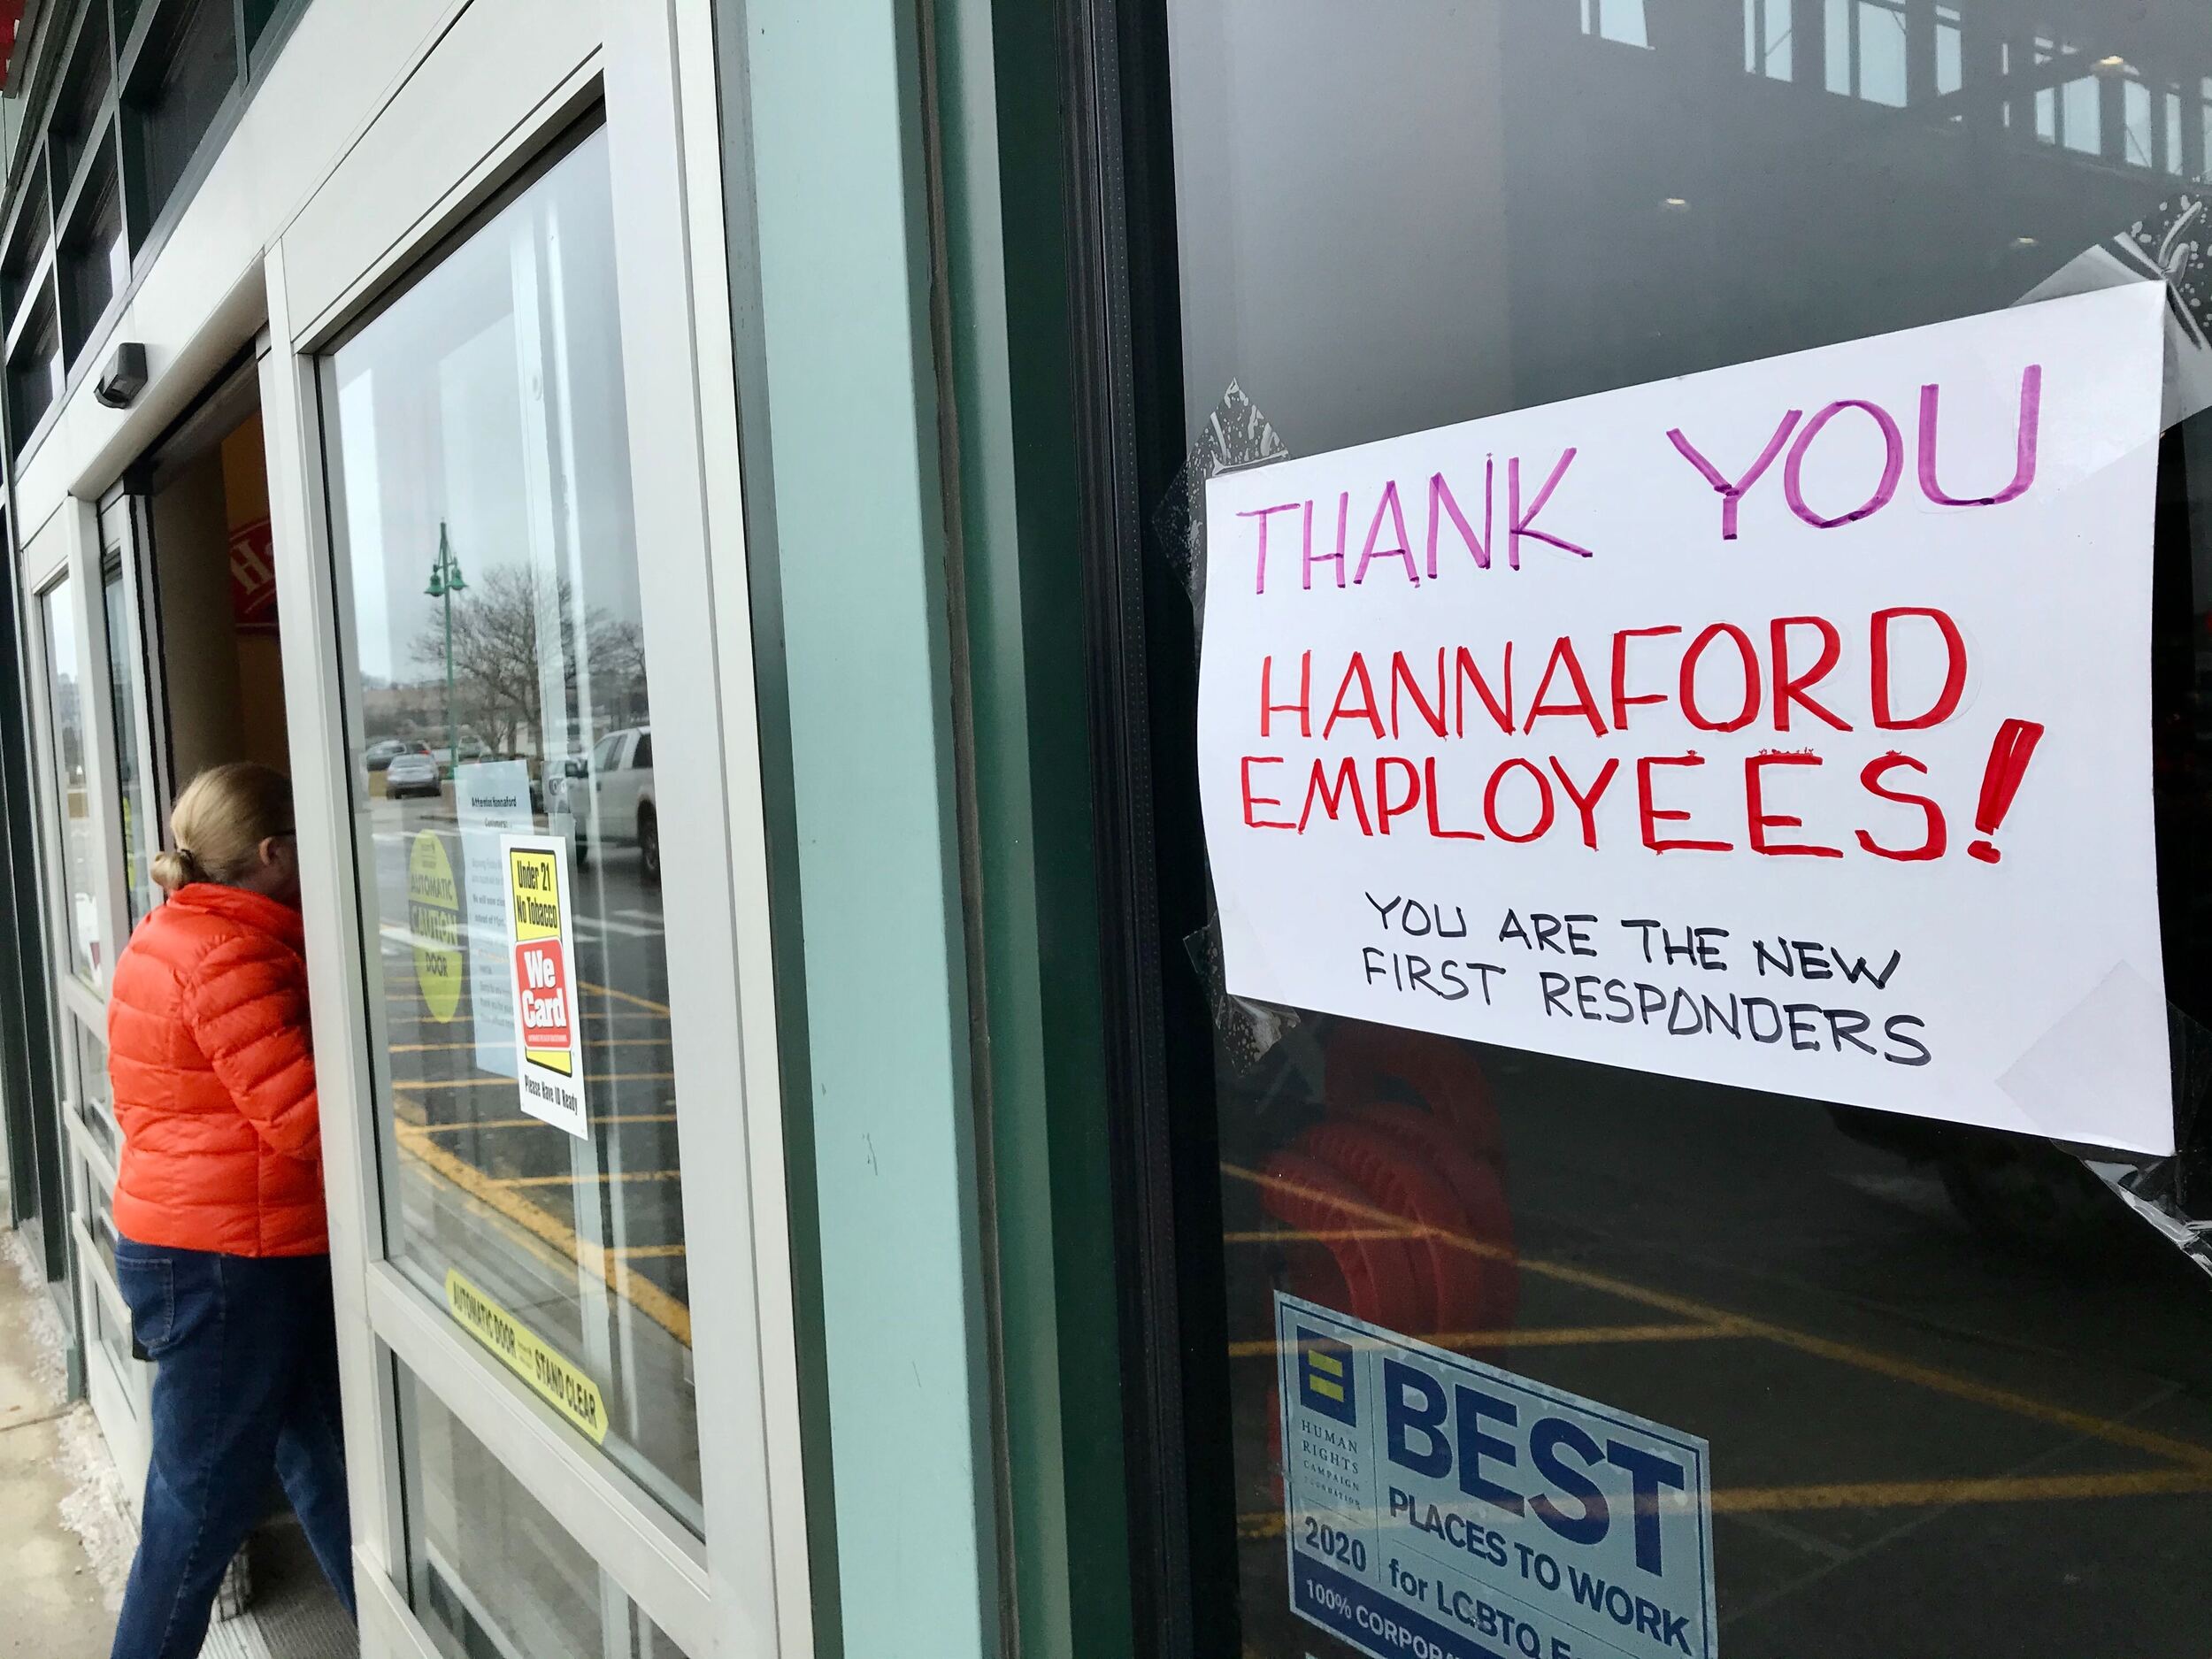 THANK YOU
HANNAFORD
EMPLOYEES!
YOU ARE THE NEW
FIRST RESPONDERS
Under 21
No Tobacco
We
Card
Please Have ID Ready
AUTOMATIC
CAUTION
DOOR
Attention Hannaford
Customers:
AUTOMATIC DOOR
STAND CLEAR
HUMAN
RIGHTS
CAMPAIGN
FOUNDATION
2020
BEST
PLACES TO WORK
for LGBTQ E
100% CORPORA
H